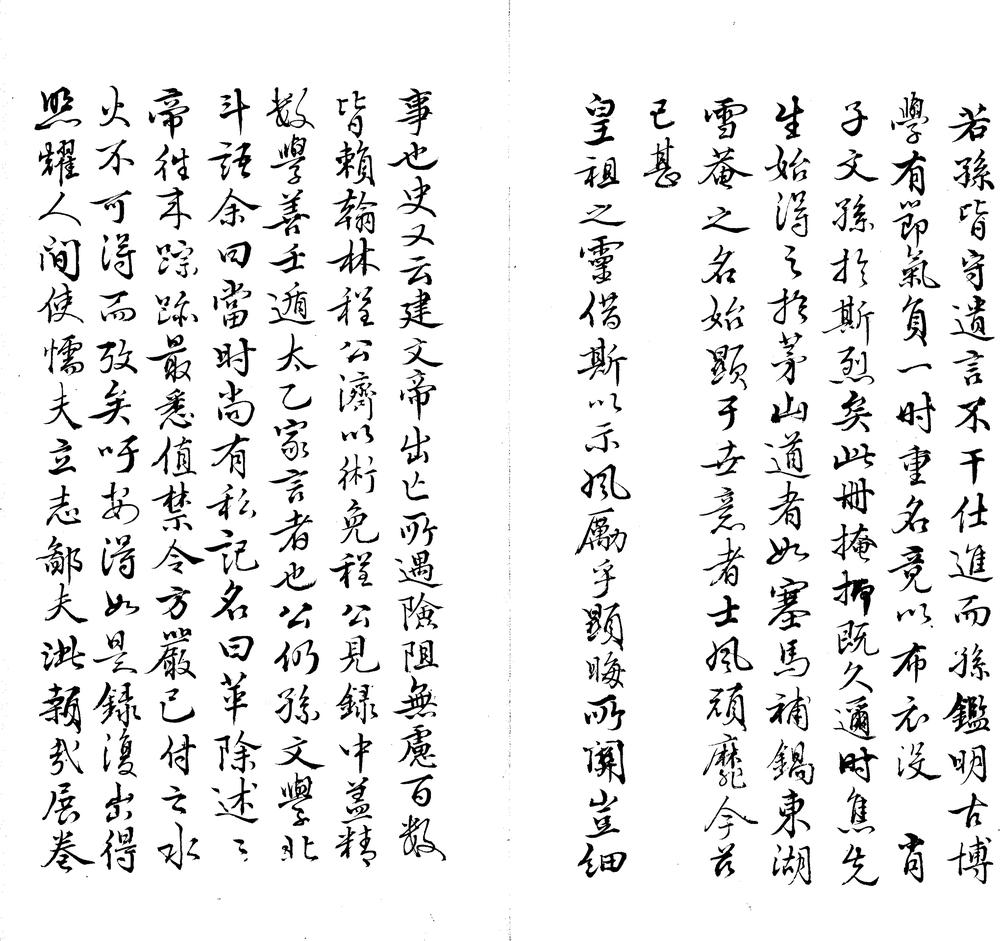 若孫皆守遺言不干仕進而孫鑑明古博
學有節氣負一時重名竟以布衣沒 肯
子文孫於斯烈矣此冊掩抑既久邇時焦先
生始得之於茅山道者如塞馬補鍋東湖
雪菴之名始顯于世意者士風頑靡今茲
已甚
皇祖之靈借斯以示風勵乎顯晦所關豈細
事也史又云建文帝出亡所遇險阻無慮百數
皆賴翰林程公濟以術免程公見錄中葢精
數學善壬遁太乙家言者也公仍孫文學北
斗語余曰當时尚有私記名曰革除述〻
帝徃来踪跡最悉值禁令方嚴已付之水
火不可得而攷矣吁安得如是録復出得
照耀人間使懦夫立志鄙夫泚顙哉展卷